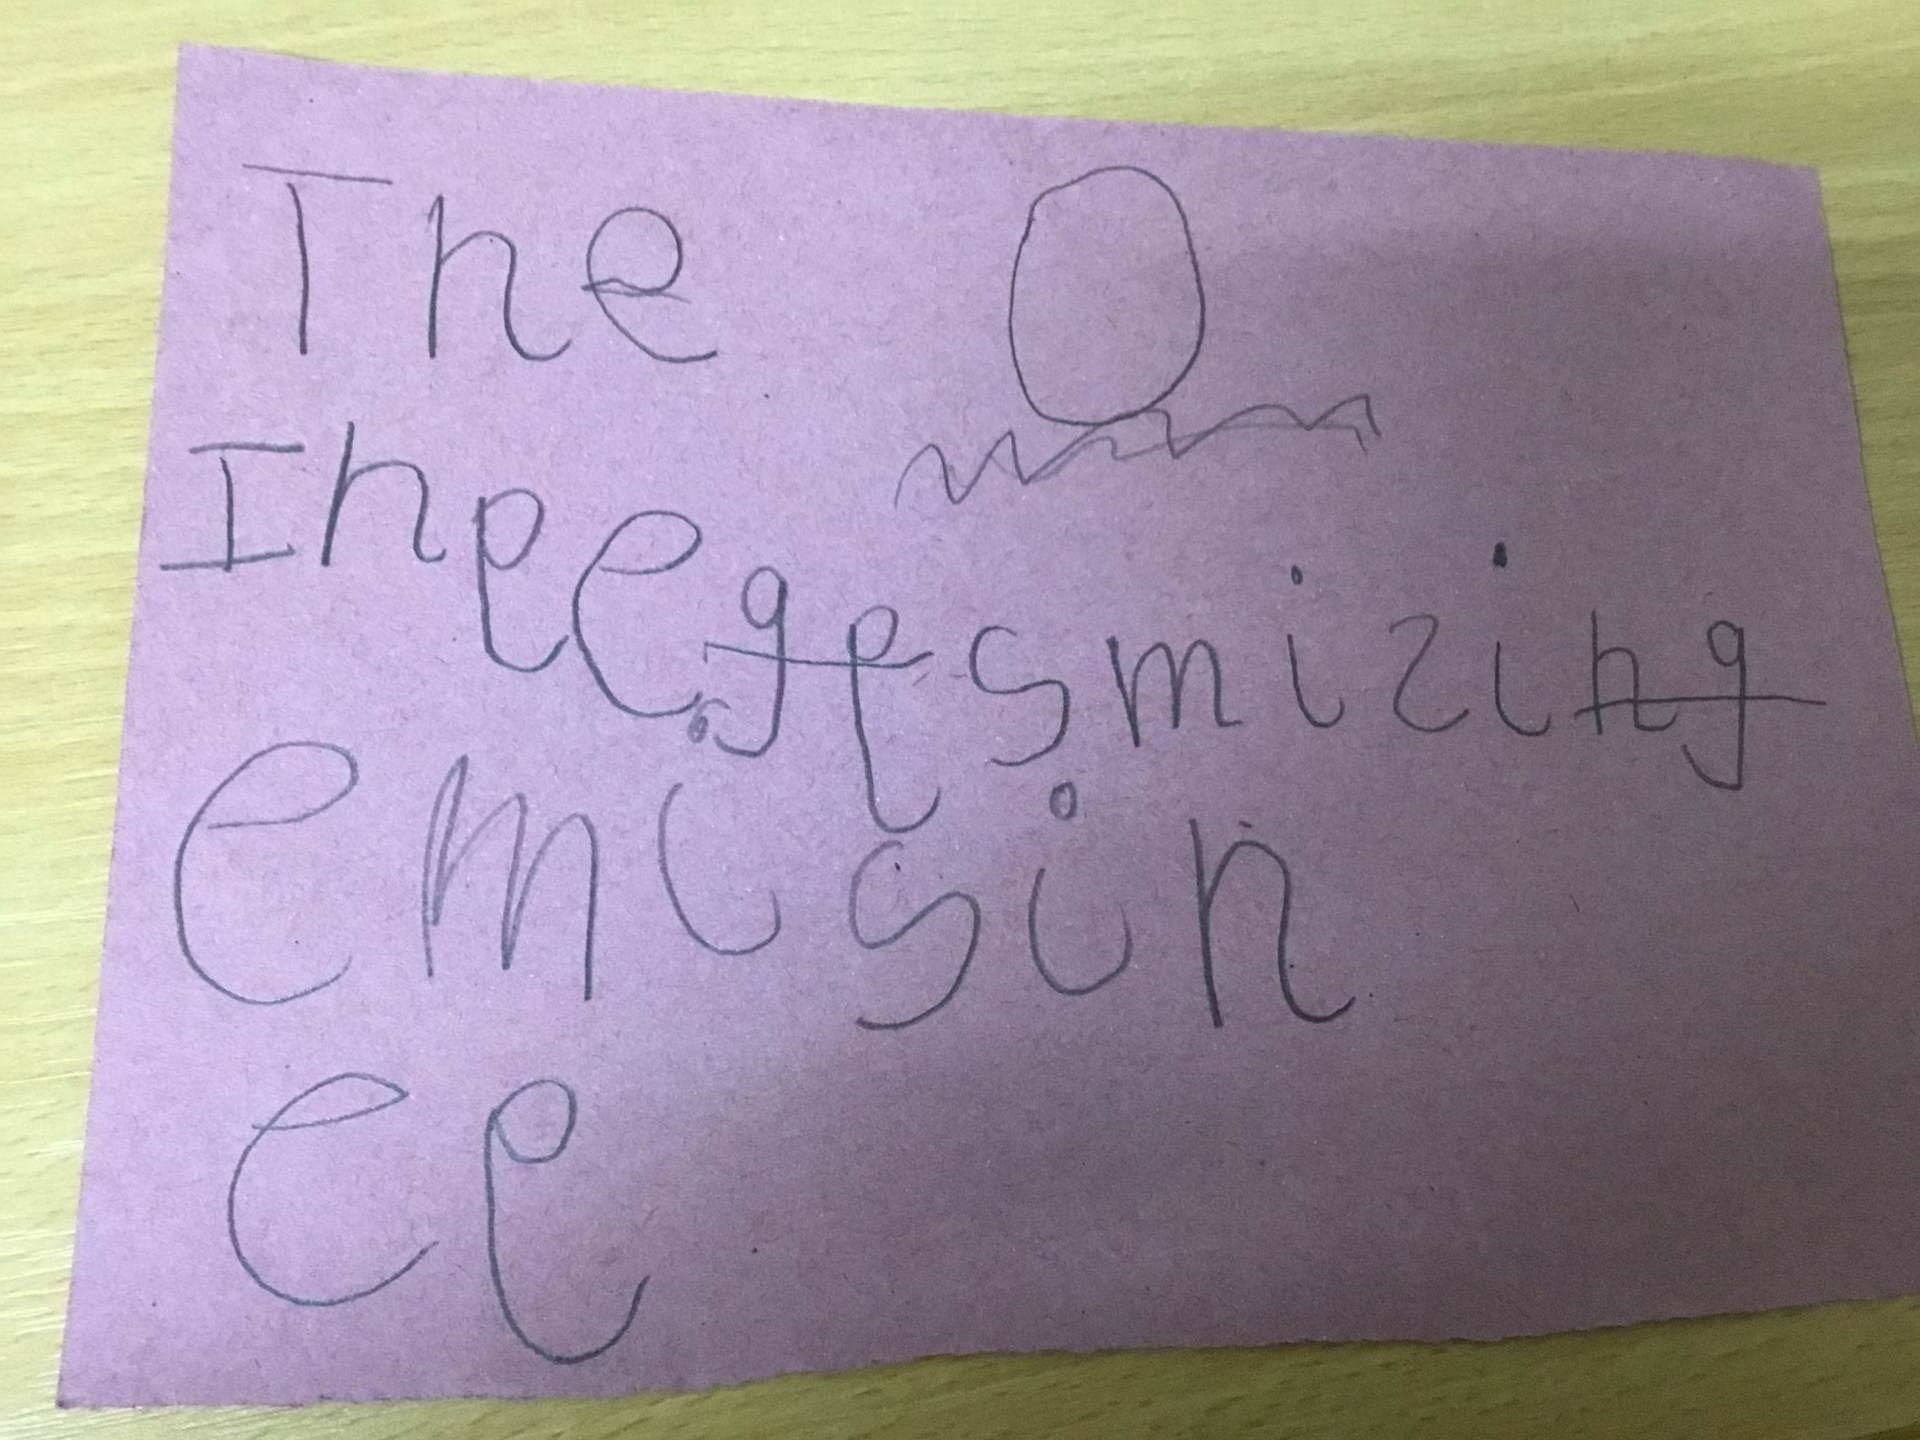 The
Ineegesmizing
emisin
ee